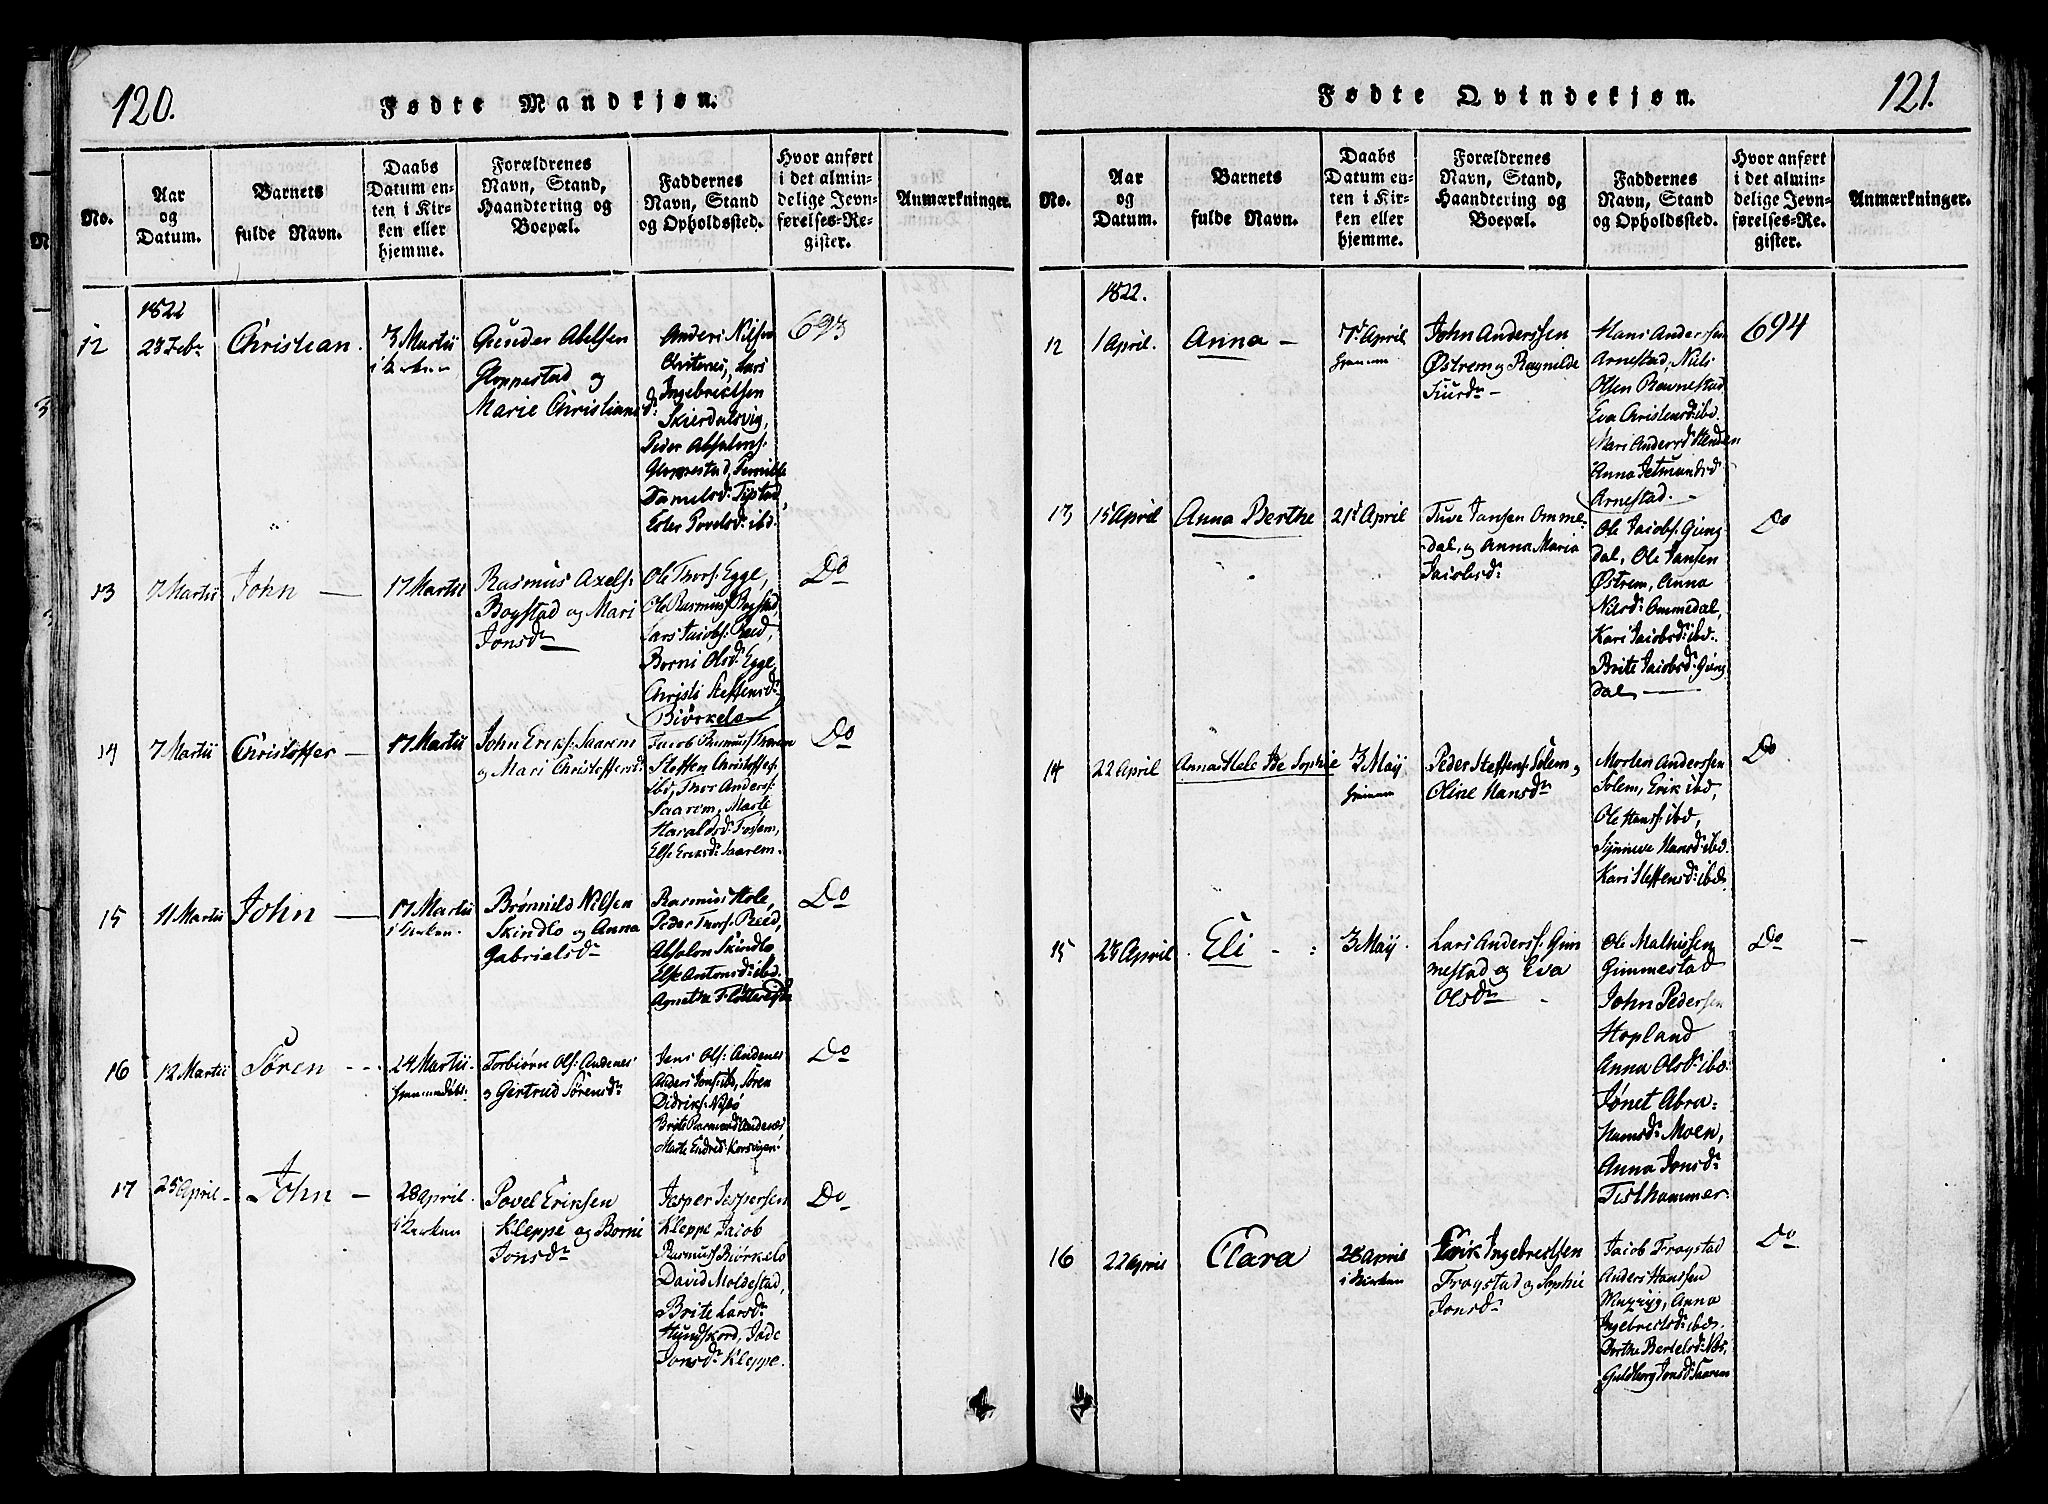 120.
Fødte Mandkjøn.
No.
Aar
og
Datum.
Barnets
fulde Navn.
Daabs
Datum en-
ten i Kir-
ken eller
hjemme.
Forældrenes
Navn, Stand,
Haandtering og
Boepæl.
Faddernes
Navn, Stand
og Opholdssted.
Hvor anført
i det almin-
delige Jevn-
førelses-Re-
gister.
Anmærkninger.
1822
12
28 Febr
Christian.
3 Martii
i Kirken
Gunder Abelsen
Gloppestad og
Marie Christiansd:
Anders Nilsen
Lars
Ingebretsen
Skierdalsvig,
Peder Absalons:
Gloppestad, Pernille
Danielsd: Tystad,
Ester Povelsd: ibd.
693
13
7 Martii
John —
17 Martii
Rasmus Axels:
Bogstad og Mari
Jonsdr
Ole Thors: Egge,
Ole Rasmus: Bogstad,
Lars Jacobs: Reed,
Borni Olsd: Egge,
Christi Steffensdr
Biörkelo
Do
14
7 Martii
Christoffer —
17 Martii
John Eriks: Saarem
og Mari Christoffersdr
Jacob Rasmus:
Steffen Christoffers:
ibd, Thor Anders:
Saarem, Marte
Haraldsd: Fossem,
Else Eriksdr Saarem.
Do
15
11 Martii
John —
17 Martii
i Kirken.
Brønnild Nilsen
Skindlo og Anna
Gabrielsdr
Rasmus Hole,
Peder Thors: Reed,
Absolon Skindlo
Else Antonsd: ibd.
Agnethe
Do
16
12 Martii
Sören - -
24 Martii
Torbiörn Ols: Andenes
og Gertrud Sörensdr
Jens Ols: Andenes
Anders Jons: ibd, Sören
Didriks:
Brite Rasmusd: Andenæs
Marte Endresd:
Do
17
25 April -
John —
28 April.
i Kirken
Povel Eriksen
Kleppe og Borni
Jonsdr
Jasper Jespersen
Kleppe Jacob
Rasmus: Biörkelo
David Moldestad,
Brite Larsdr
Hundskord,
Jonsdr Kleppe.
Do
121.
Fødte Qvindekjøn.
No.
Aar
og
Datum.
Barnets
fulde Navn.
Daabs
Datum en-
ten i Kir-
ken eller
hjemme.
Forældrenes
Navn, Stand,
Haandtering og
Boepæl.
Faddernes
Navn, Stand
og Opholdssted.
Hvor anført
i det almin-
delige Jevn-
førelses-Re-
gister.
Anmærkninger.
1822.
12
1 April.
Anna —
7de April
John Anderssen
Østrem og Ragnilde
Siurdr —
Hans Anderssen
Arnestad, Nils
Olsen Ravnestad
Eva Christensd: ibd.
Mari Andersd:
Anna Jetmundsd:
Arnestad. —
694
13
15 April
Anna Berthe
21d April
Tuve Jansen Omme-
dal, og Anna Maria
Jacobsdr
Ole Jacobs: Gieng-
dal, Ole Jansen
Østrem, Anna
Nilsd: Ommedal,
Kari Jacobsd: ibd.
Brite Jacobsd: Gieng-
dal —
Do
14
22 April
Anna Sophie
3 Maij
Peder Steffens: Solem og
Oline Hansdr
Morten Anderssen
Solem, Erik ibd,
Ole Hans: ibd,
Synneve Hansd: ibd.
Kari Steffensd: ibd.
Do
15
28 April
Eli - :
3 Maij.
Lars Anders: Gim
mestad og Eva
Olsdr
Ole Mathissen
Gimmestad
John Pedersen
Hopland
Anna Olsdr ibd.
Jönet Abra-
hamsd: Moen,
Anna Jonsdr
Tisthammer
Do
—
16
22 April
Clara
28 April
i Kirken
Erik Ingebretsen
Frogstad og Sophie
Jonsdr
Jacob Frogstad
Anders Hanssen
Anna
Ingebretsd: ibd.
Dorthe Bertelsd: Næs,
Guldborg Jonsd: Saarem
Do